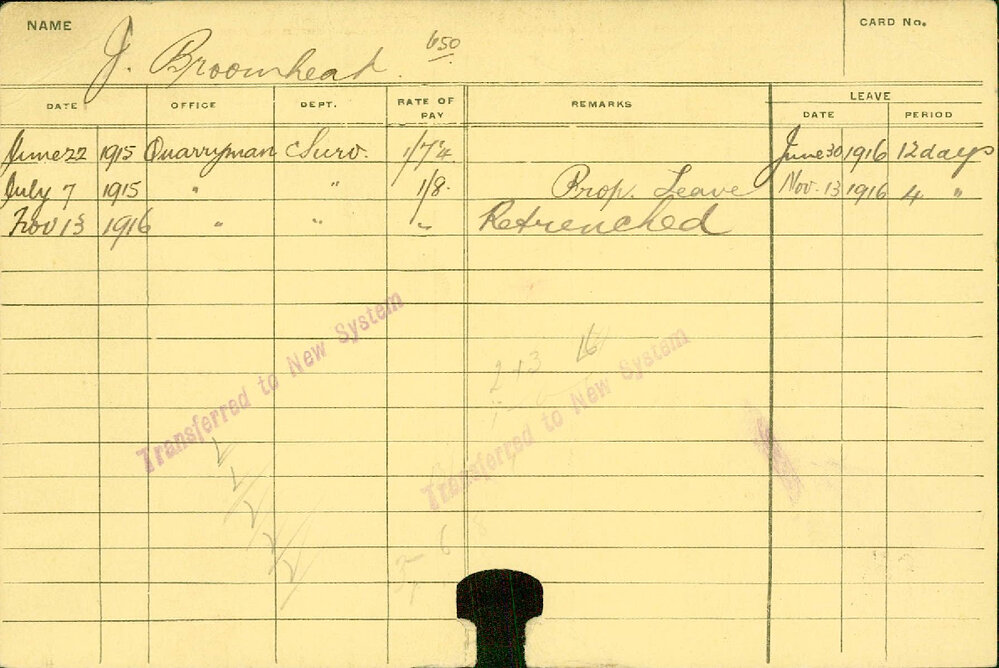 NAME J. Broomhead. 650 CARD No.
DATE OFFICE DEPT. RATE OF PAY REMARKS LEAVE
DATE PERIOD
June 22 1915 Quarryman Surv. 1/7¼ June 30 1916 12 days
July 7 1915 " " 1/8. Prop. Leave Nov. 13 1916 4 "
Nov 13 1916 " " " Retrenched
Transferred to New System
Transferred to New System